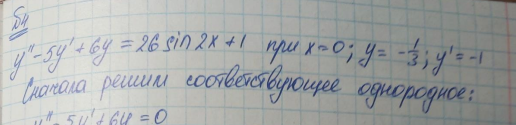 Б4
y'' - 5y' + 6y = 26 sin 2x + 1 при x = 0; y = -1/3; y' = -1
Сначала решим соответствующее однородное:
y'' - 5y' + 6y = 0